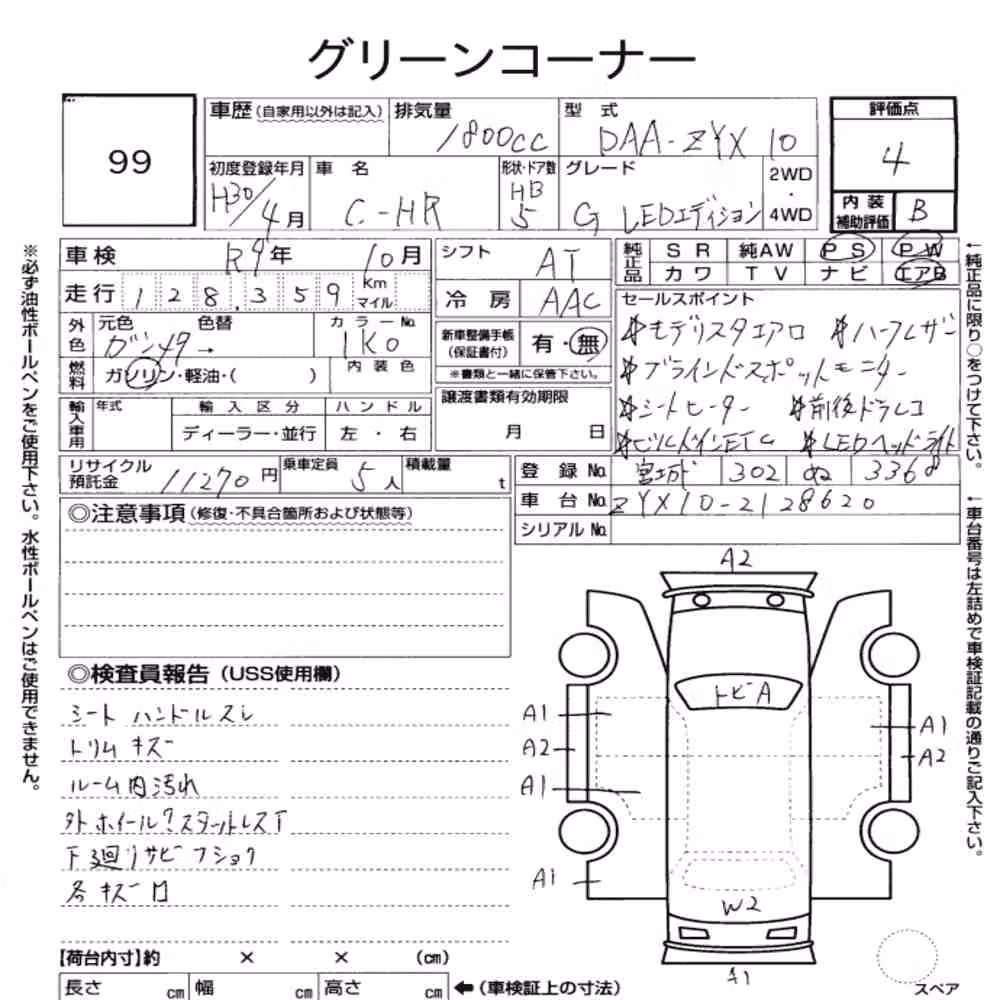 グリーンコーナー
99
車歴 (自家用以外は記入) 排気量 1800cc 型式 DAA-ZYX 10
評価点 4
初度登録年月 H30/4月 車名 C-HR 形状・ドア数 HB 5 グレード G LEDエディション 2WD・4WD
内装補助評価 B
車検 R9年 10月 シフト AT
純正品 SR 純AW PS PW
カワ TV ナビ エアB
走行 128,359 Km マイル 冷房 AAC
セールスポイント
外色 元色 色替 カラーNo.
ガンメタ→ 1K0
新車整備手帳(保証書付) 有・無
※書類と一緒に保管下さい。
燃料 ガソリン・軽油・( ) 内装色
*モデリスタエアロ *ハーフレザー
*ブラインドスポットモニター
*シートヒーター *前後ドラレコ
*ビルドインETC *LEDヘッドライト
譲渡書類有効期限
月 日
輸入車用 年式 輸入区分 ハンドル
ディーラー・並行 左・右
リサイクル預託金 11270円 乗車定員 5人 積載量 t
登録No. 宮城 302 ぬ 3368
車台No. ZYX10-2128620
シリアルNo.
◎注意事項 (修復・不具合箇所および状態等)
◎検査員報告 (USS使用欄)
シート ハンドルスレ
トリムキズ
ルーム内汚れ
外ホイール?スタットレスT
下廻りサビフショク
各キズ凹
A2
トビA
A1
A2
A1
A1
A1
A2
W2
A1
スペア
【荷台内寸】約 × × (cm)
長さ cm 幅 cm 高さ cm ←(車検証上の寸法)
※必ず油性ボールペンをご使用下さい。水性ボールペンはご使用できません。
←純正品に限り○をつけて下さい。
←車台番号は左詰めで車検証記載の通りご記入下さい。